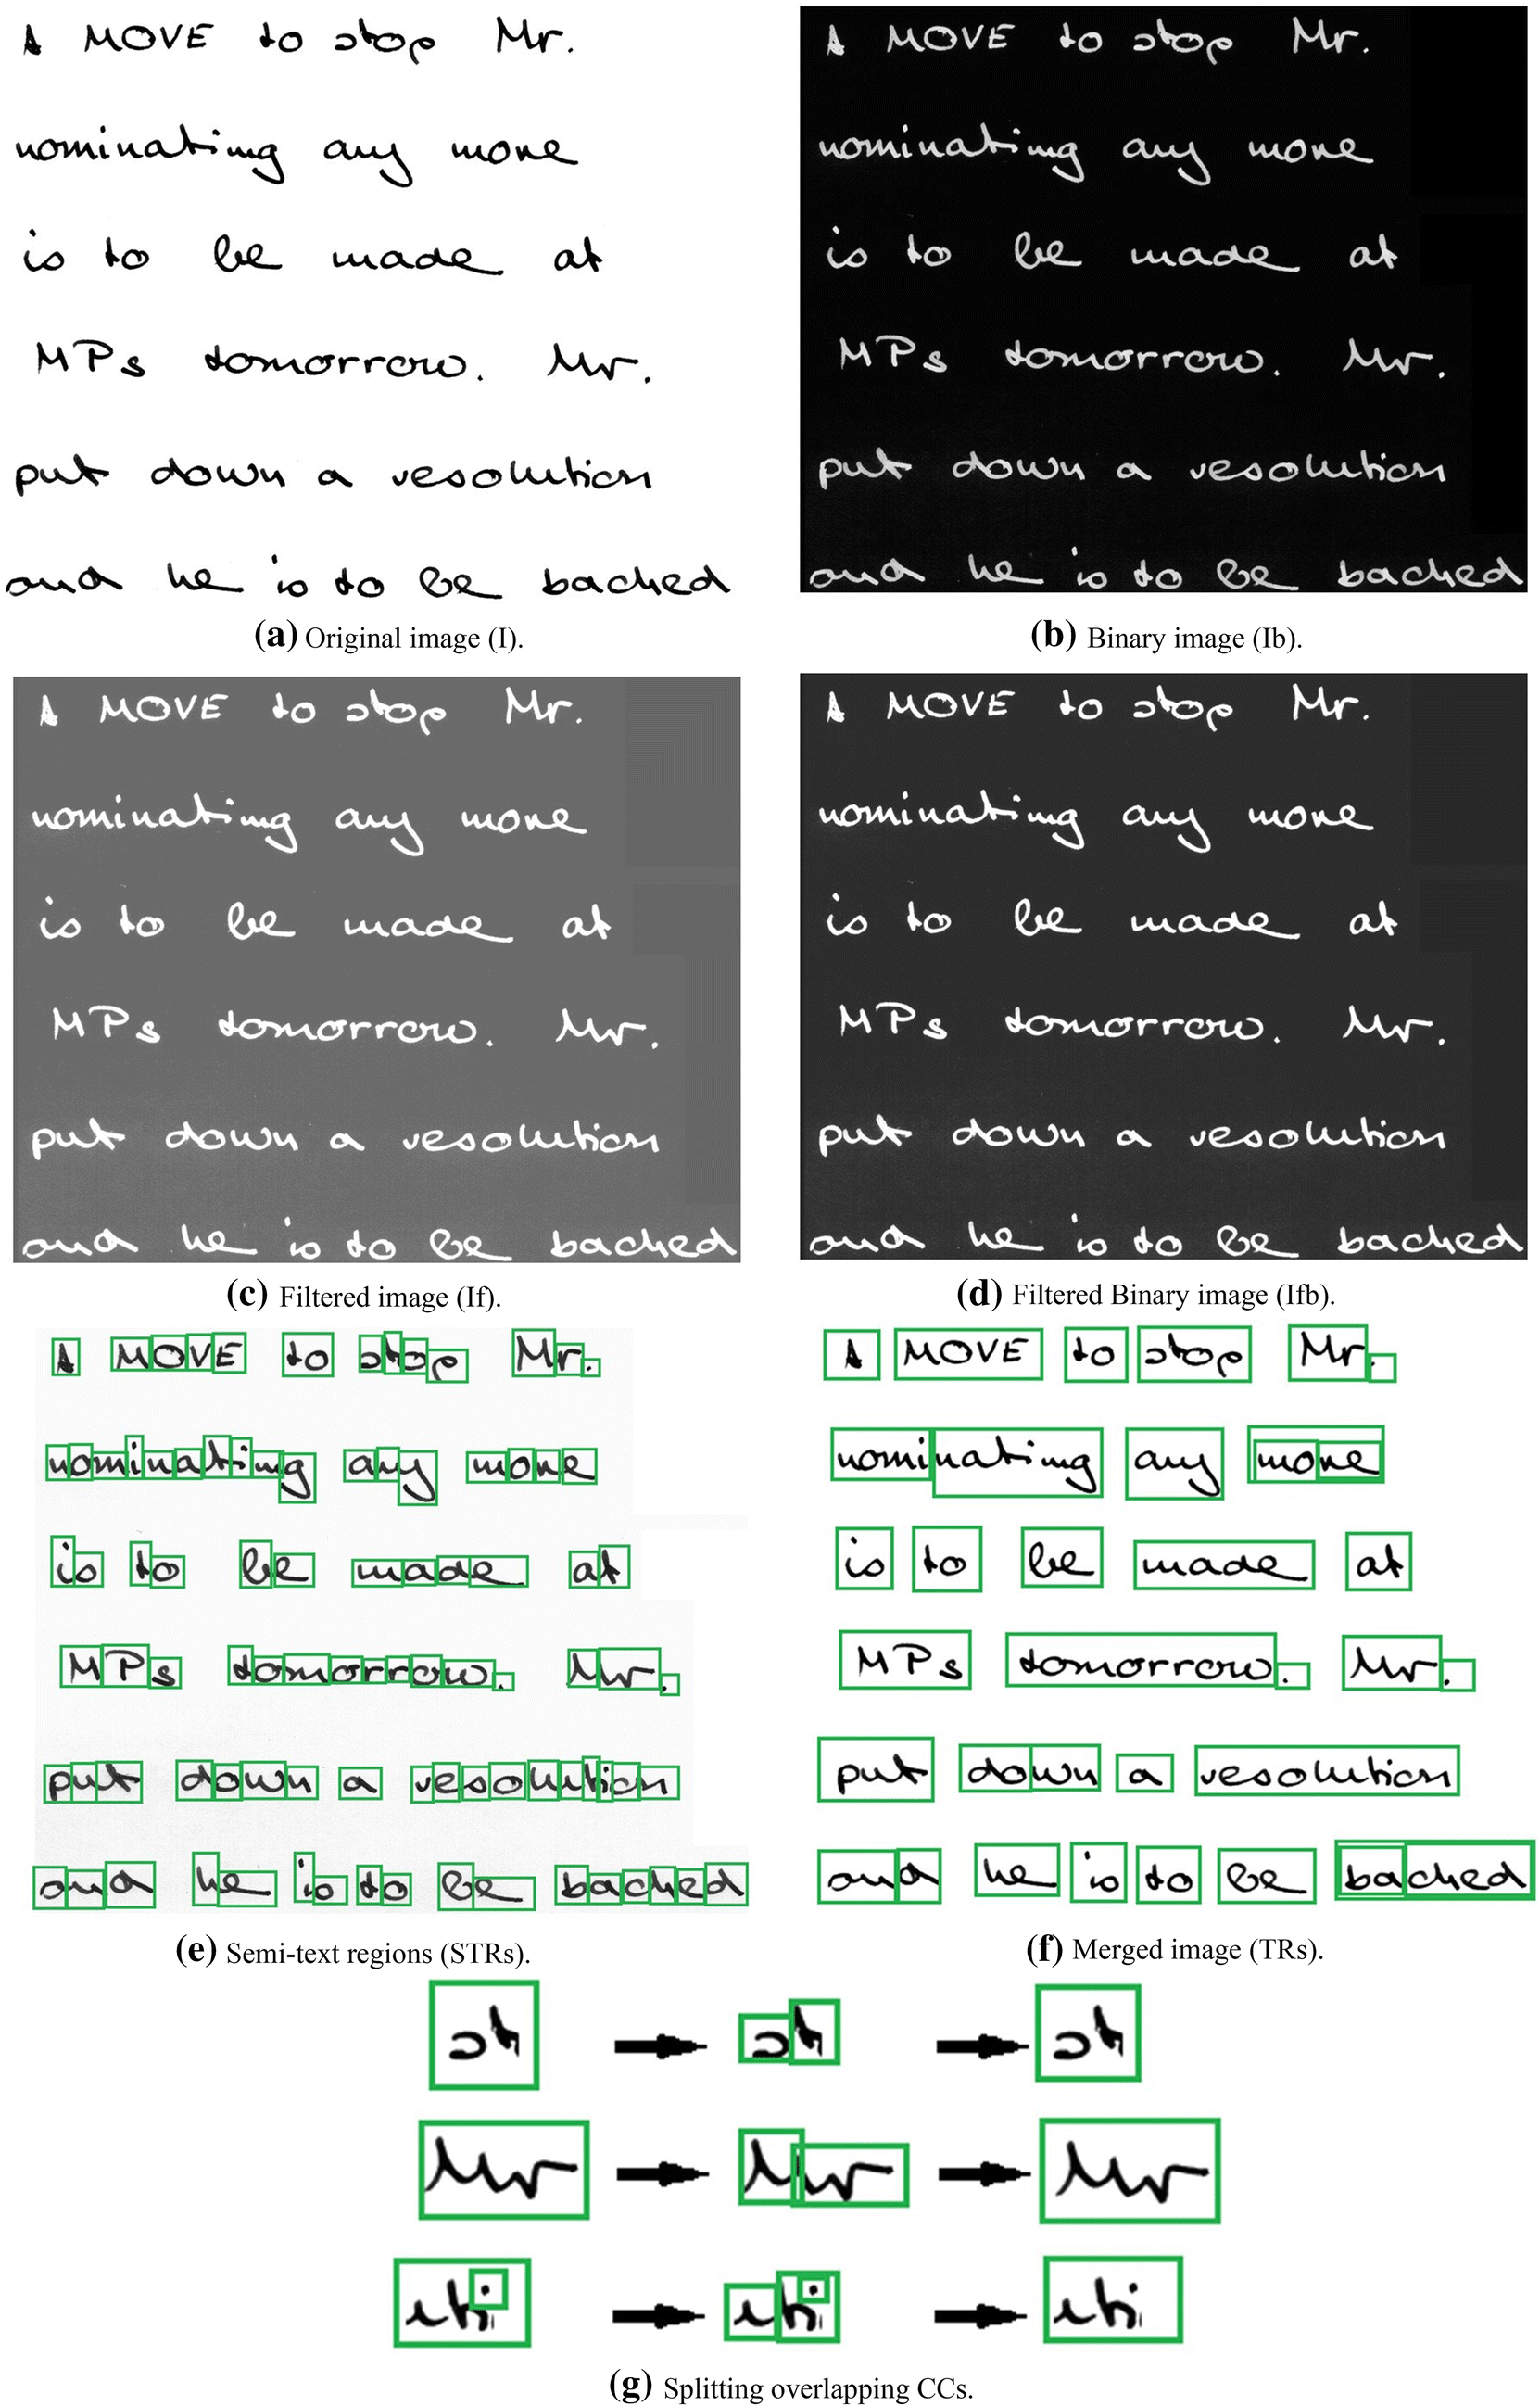 A MOVE to stop Mr. A MOVE to stop Mr.
nominating any more nominating any more
is to be made at is to be made at
MPs tomorrow. Mr. MPs tomorrow. Mr.
put down a resolution put down a resolution
and he is to be backed and he is to be backed
(a) Original image (I). (b) Binary image (Ib).
A MOVE to stop Mr. A MOVE to stop Mr.
nominating any more nominating any more
is to be made at is to be made at
MPs tomorrow. Mr. MPs tomorrow. Mr.
put down a resolution put down a resolution
and he is to be backed and he is to be backed
(c) Filtered image (If). (d) Filtered Binary image (Ifb).
A MOVE to stop Mr. A MOVE to stop Mr.
nominating any more nominating any more
is to be made at is to be made at
MPs tomorrow. Mr. MPs tomorrow. Mr.
put down a resolution put down a resolution
and he is to be backed and he is to be backed
(e) Semi-text regions (STRs). (f) Merged image (TRs).
st st st
Mr Mr Mr
uti uti uti
(g) Splitting overlapping CCs.